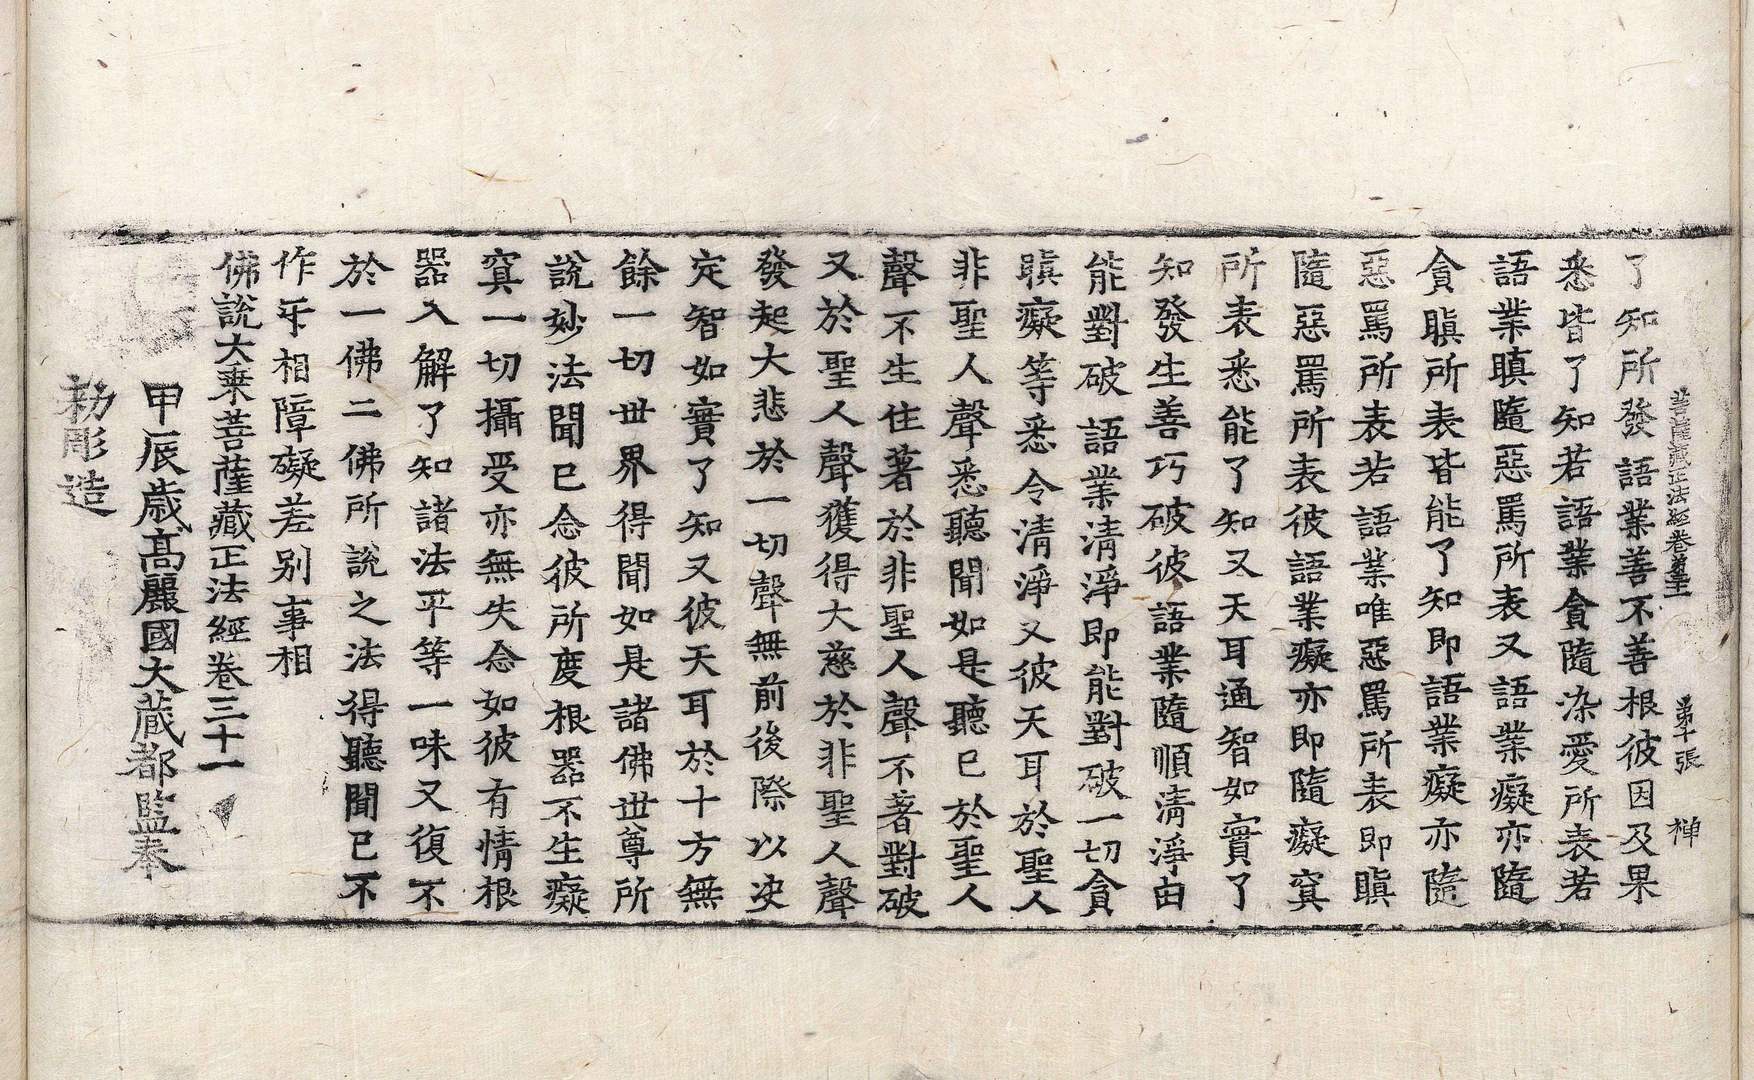 菩薩藏正法經卷第三十一　第十張　禪
了知所發語業善不善根彼因及果
悉皆了知若語業貪隨染愛所表若
語業瞋隨惡罵所表又語業癡亦隨
貪瞋所表皆能了知即語業癡亦隨
惡罵所表若語業唯惡罵所表即瞋
隨惡罵所表彼語業癡亦即隨癡寘
所表悉能了知又天耳通智如實了
知發生善巧破彼語業隨順清淨由
能對破語業清淨即能對破一切貪
瞋癡等悉令清淨又彼天耳於聖人
非聖人聲悉聽聞如是聽已於聖人
聲不生住著於非聖人聲不著對破
又於聖人聲獲得大慈於非聖人聲
發起大悲於一切聲無前後際以决
定智如實了知又彼天耳於十方無
餘一切世界得聞如是諸佛世尊所
說妙法聞已念彼所度根器不生癡
寘一切攝受亦無失念如彼有情根
器入解了知諸法平等一味又復不
於一佛二佛所說之法得聽聞已不
作㸦相障礙差別事相
佛說大乘菩薩藏正法經卷三十一
甲辰歲高麗國大藏都監奉
勑彫造